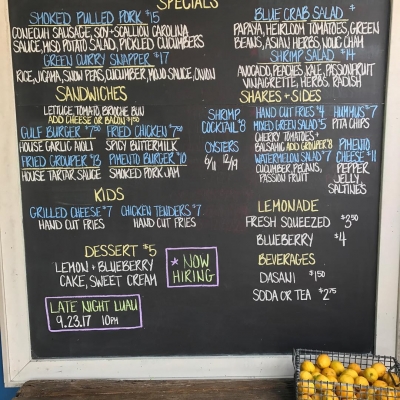 SPECIALS
SMOKED PULLED PORK $15
CONECUH SAUSAGE, SOY-SCALLION CAROLINA
SAUCE, MISO POTATO SALAD, PICKLED CUCUMBERS
GREEN CURRY SNAPPER $17
RICE, JICAMA, SNOW PEAS, CUCUMBER, MOJO SAUCE, ONION
BLUE CRAB SALAD $
PAPAYA, HEIRLOOM TOMATOES, GREEN
BEANS, ASIAN HERBS, NOUC CHAM
SHRIMP SALAD $14
AVOCADO, PEACHES, KALE, PASSIONFRUIT
VINAIGRETTE, HERBS, RADISH
SANDWICHES
LETTUCE, TOMATO, BRIOCHE BUN
ADD CHEESE OR BACON $1.50
GULF BURGER $7.50
HOUSE GARLIC AIOLI
FRIED CHICKEN $7.50
SPICY BUTTERMILK
FRIED GROUPER $13
HOUSE TARTAR SAUCE
PIMENTO BURGER $10
SMOKED PORK JAM
SHRIMP
COCKTAIL $8
OYSTERS
6/11 12/19
SHARES + SIDES
HAND CUT FRIES $4
MIXED GREEN SALAD $5
CHERRY TOMATOES +
BALSAMIC ADD GROUPER $8
WATERMELON SALAD $7
CUCUMBER, PECANS,
PASSION FRUIT
HUMMUS $7
PITA CHIPS
PIMENTO
CHEESE $11
PEPPER
JELLY
SALTINES
KIDS
GRILLED CHEESE $7
HAND CUT FRIES
CHICKEN TENDERS $7
HAND CUT FRIES
DESSERT $5
LEMON + BLUEBERRY
CAKE, SWEET CREAM
* NOW
HIRING
LATE NIGHT LUAU
9.23.17 10PM
LEMONADE
FRESH SQUEEZED $3.50
BLUEBERRY $4
BEVERAGES
DASANI $1.50
SODA OR TEA $2.75